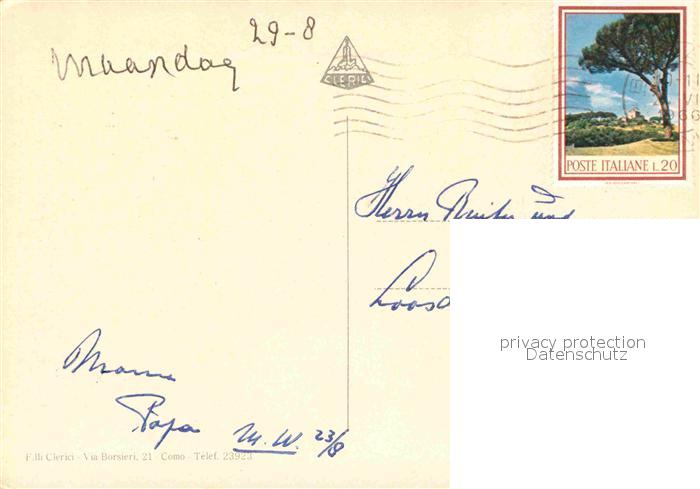 29-8
Maandag
CLERICI
POSTE ITALIANE L.20
Herrn Reiter und
Mama
Papa
M.W. 23/8
F.lli Clerici - Via Borsieri, 21 - Como - Telef. 23923
privacy protection
Datenschutz